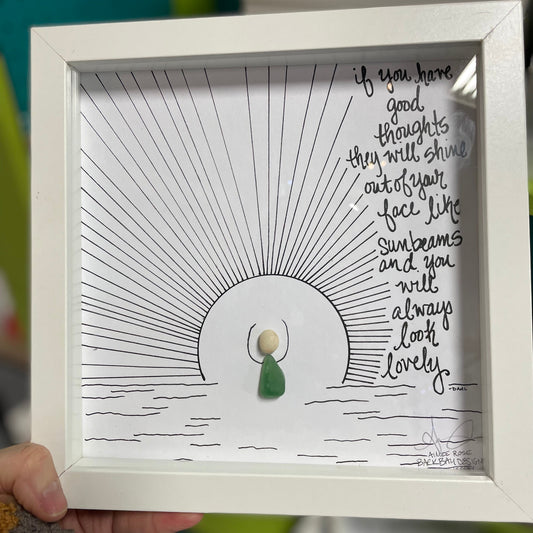 if you have
good
thoughts
they will shine
out of your
face like
sunbeams
and you
will
always
look
lovely.
-DAHL
AIMEE ROSE
BACK BAY DESIGN